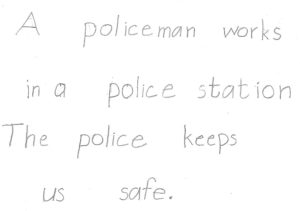 A policeman works
in a police station
The police keeps
us safe.